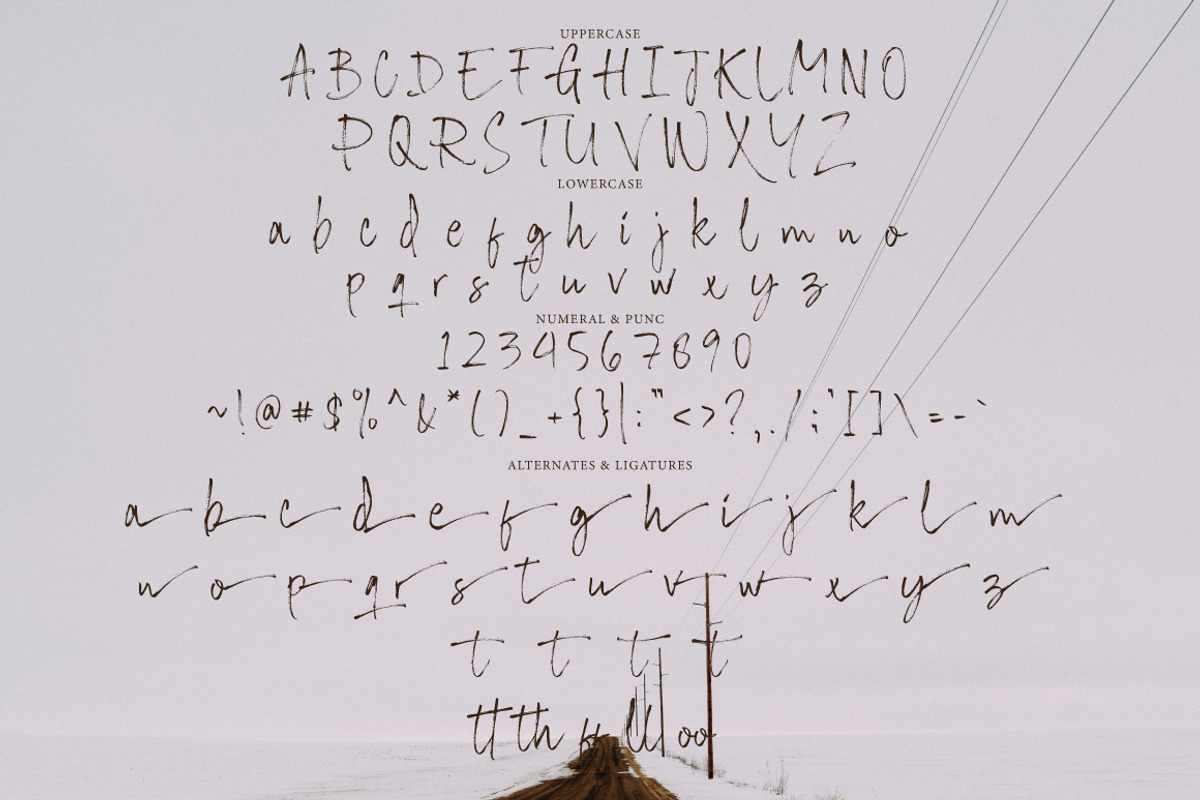 UPPERCASE
A B C D E F G H I J K L M N O
P Q R S T U V W X Y Z
LOWERCASE
a b c d e f g h i j k l m n o
p q r s t u v w x y z
NUMERAL & PUNC
1 2 3 4 5 6 7 8 9 0
~ ! @ # $ % ^ & * ( ) _ + { } | : " < > ? , . / ; ' [ ] \ = - `
ALTERNATES & LIGATURES
a b c d e f g h i j k l m
n o p q r s t u v w x y z
t t t t
tt th ff ll oo